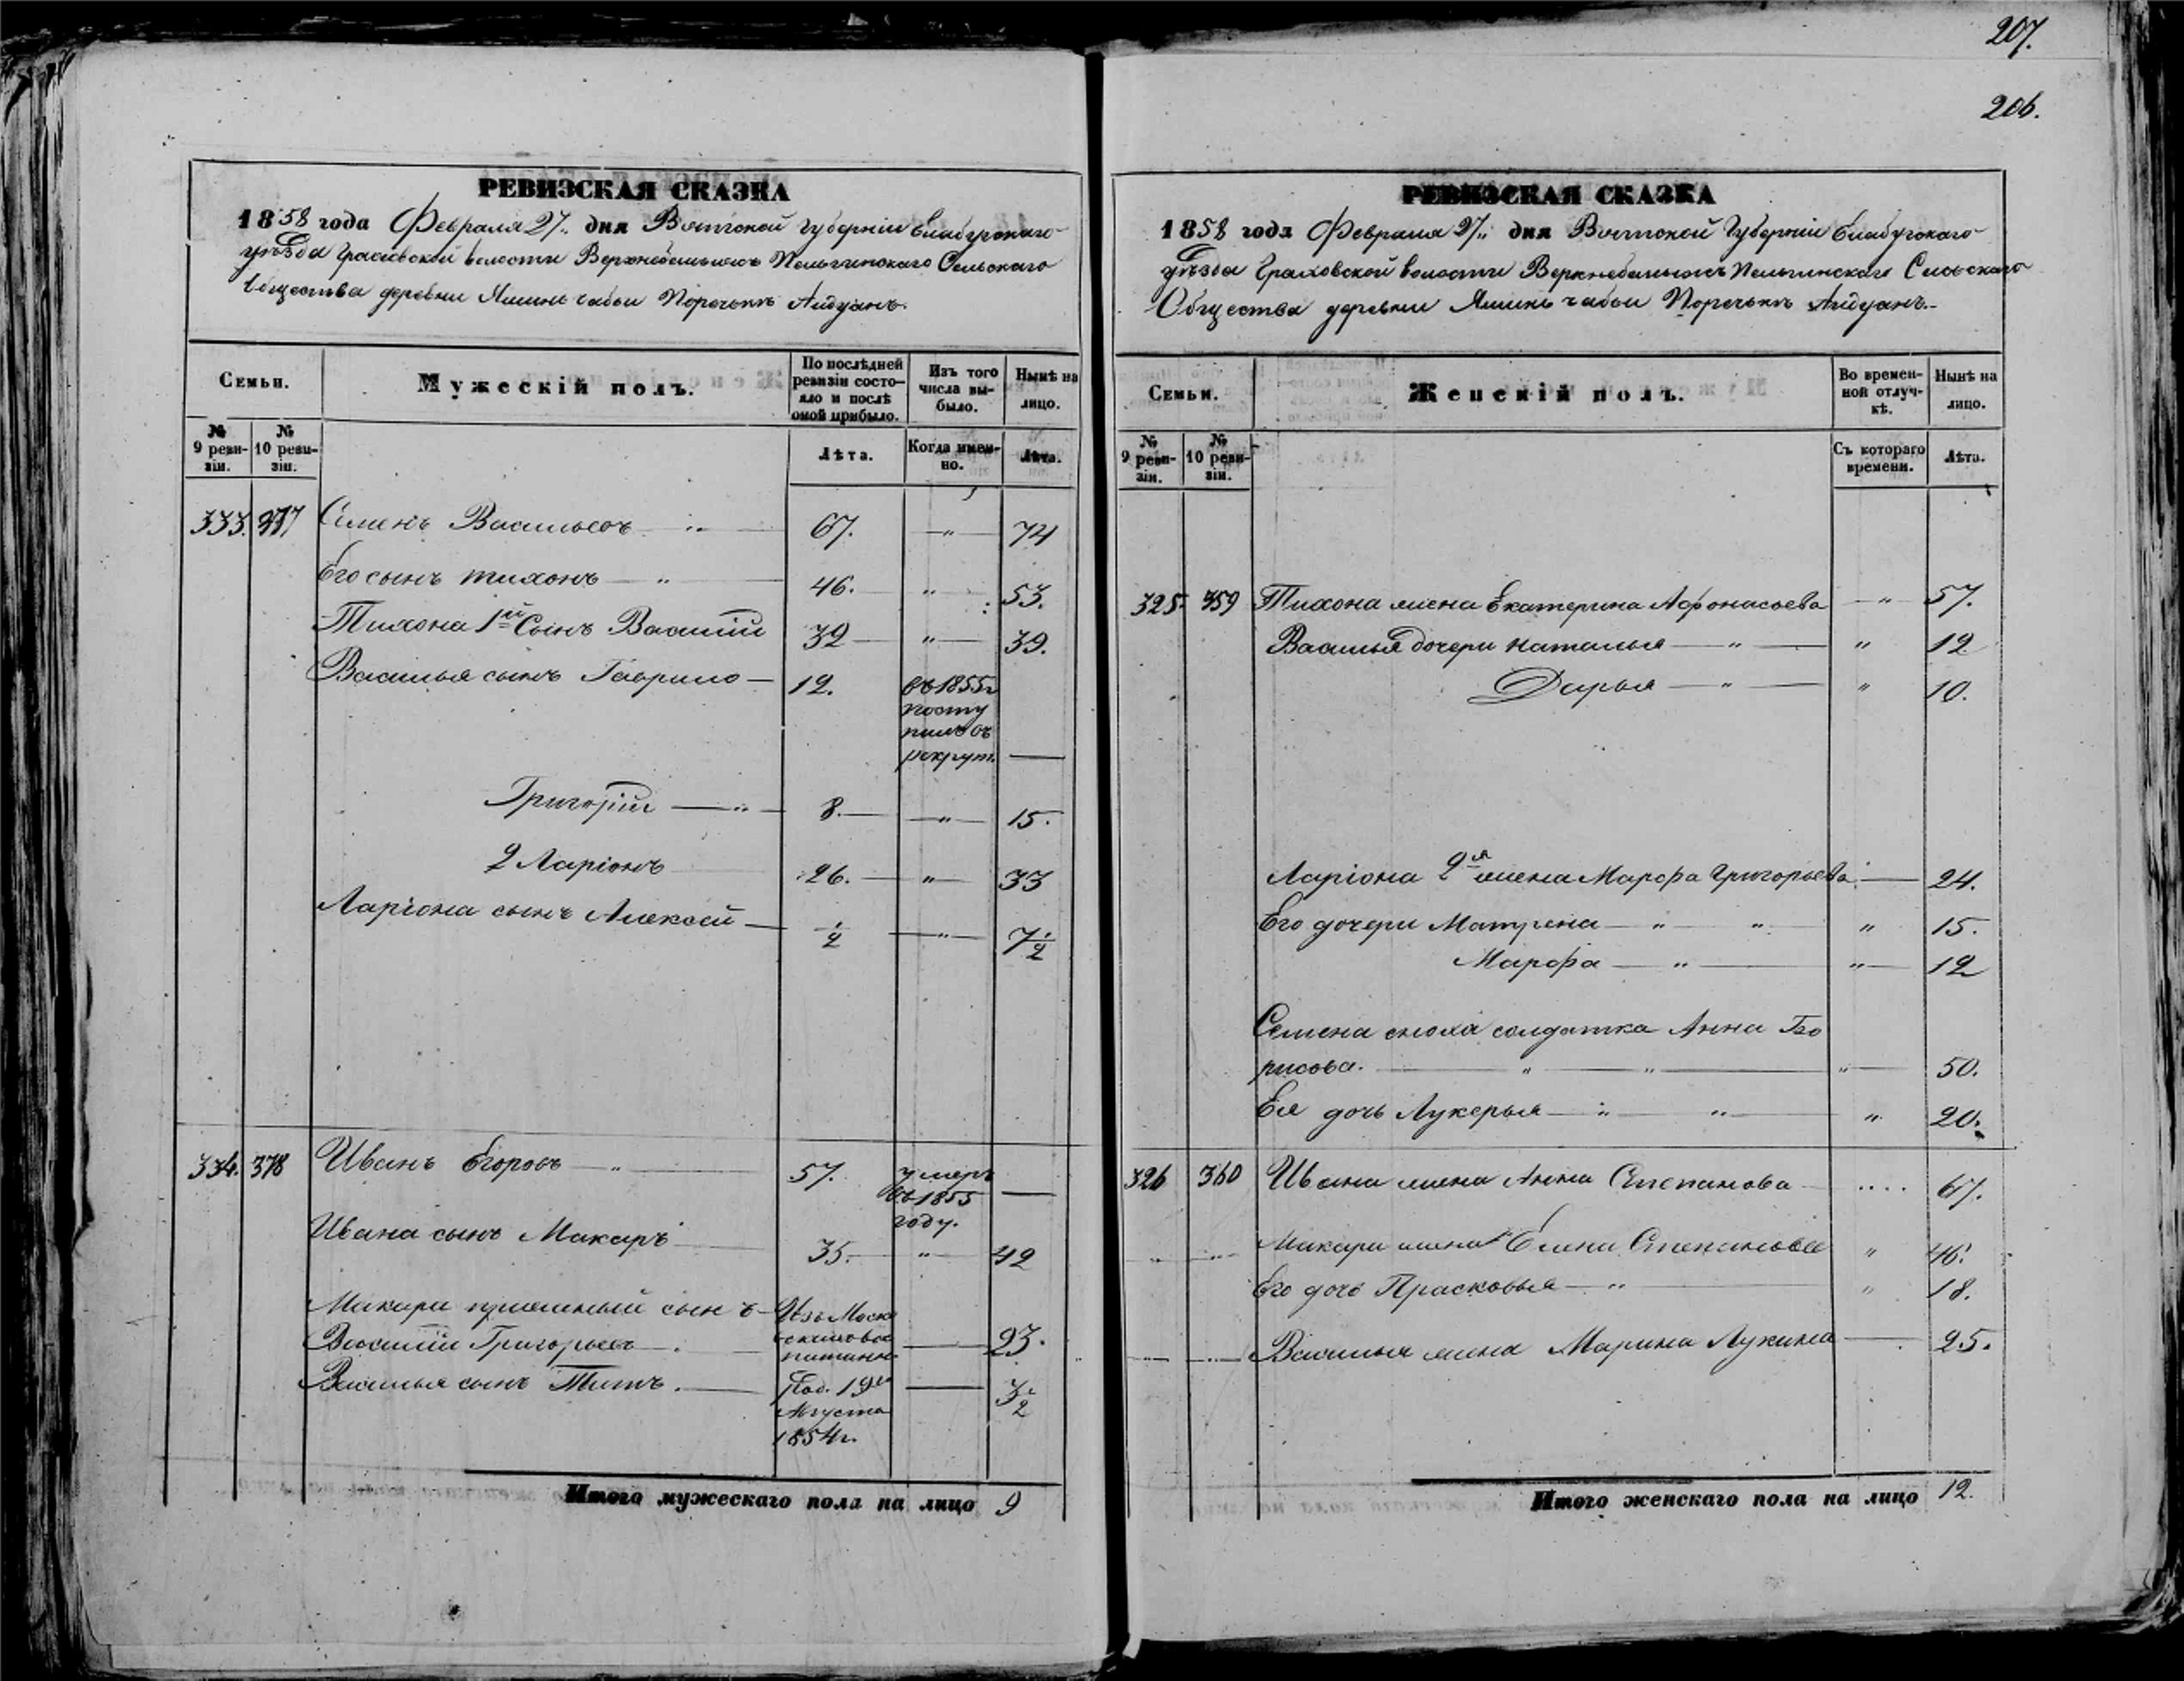 207.
206.
РЕВИЗСКАЯ СКАЗКА
1858 года Февраля 27 дня Вятской губерніи Елабугскаго
уѣзда Граховской волости Пельгинскаго Сельскаго
Общества деревни Порѣчьѣ Айдуанъ.
Семьи.
Мужескій полъ.
По послѣдней ревизіи состояло и послѣ оной прибыло.
Изъ того числа выбыло.
Нынѣ на лицо.
№ 9 ревизіи.
№ 10 ревизіи.
Лѣта.
Когда именно.
Лѣта.
333. 377 Семенъ Васильевъ 67. 74
Его сынъ Тихонъ 46. 53.
Тихона 1й Сынъ Василій 32 39.
Василья сынъ Гаврило 12. въ 1855 г
посту
пилъ въ
рекрут.
Григорій 8. 15.
2 Ларіонъ 26. 33
Ларіона сынъ Алексѣй 1/2 7 1/2
334. 378 Иванъ Егоровъ 57. умеръ
въ 1855
году.
Ивана сынъ Макаръ 35. 42
Макара пріемный сынъ Изъ
Василій Григорьевъ 23.
Василья сынъ Титъ. Род. 19го 3 1/2
Августа
1854 г.
Итого мужескаго пола на лицо 9
РЕВИЗСКАЯ СКАЗКА
1858 года Февраля 27 дня Вятской Губерніи Елабугскаго
уѣзда Граховской волости Пельгинскаго Сельскаго
Общества деревни Порѣчьѣ Айдуанъ.
Семьи.
Женскій полъ.
Во временной отлучкѣ.
Нынѣ на лицо.
№ 9 ревизіи.
№ 10 ревизіи.
Съ котораго времени.
Лѣта.
325. 359 Тихона жена Екатерина Афонасьева 57.
Василья дочери Наталья 12
Дарья 10.
Ларіона 2я жена Марфа Григорьева 24.
Его дочери Матрена 15.
Марфа 12
Семена сноха солдатка Анна Бо
рисова. 50.
Ея дочь Лукерья 20.
326 360 Ивана жена Анна Степанова 67.
Макара жена Елена Степанова 46.
Его дочь Прасковья 18.
Василья жена Марина Лукина 25.
Итого женскаго пола на лицо 12.